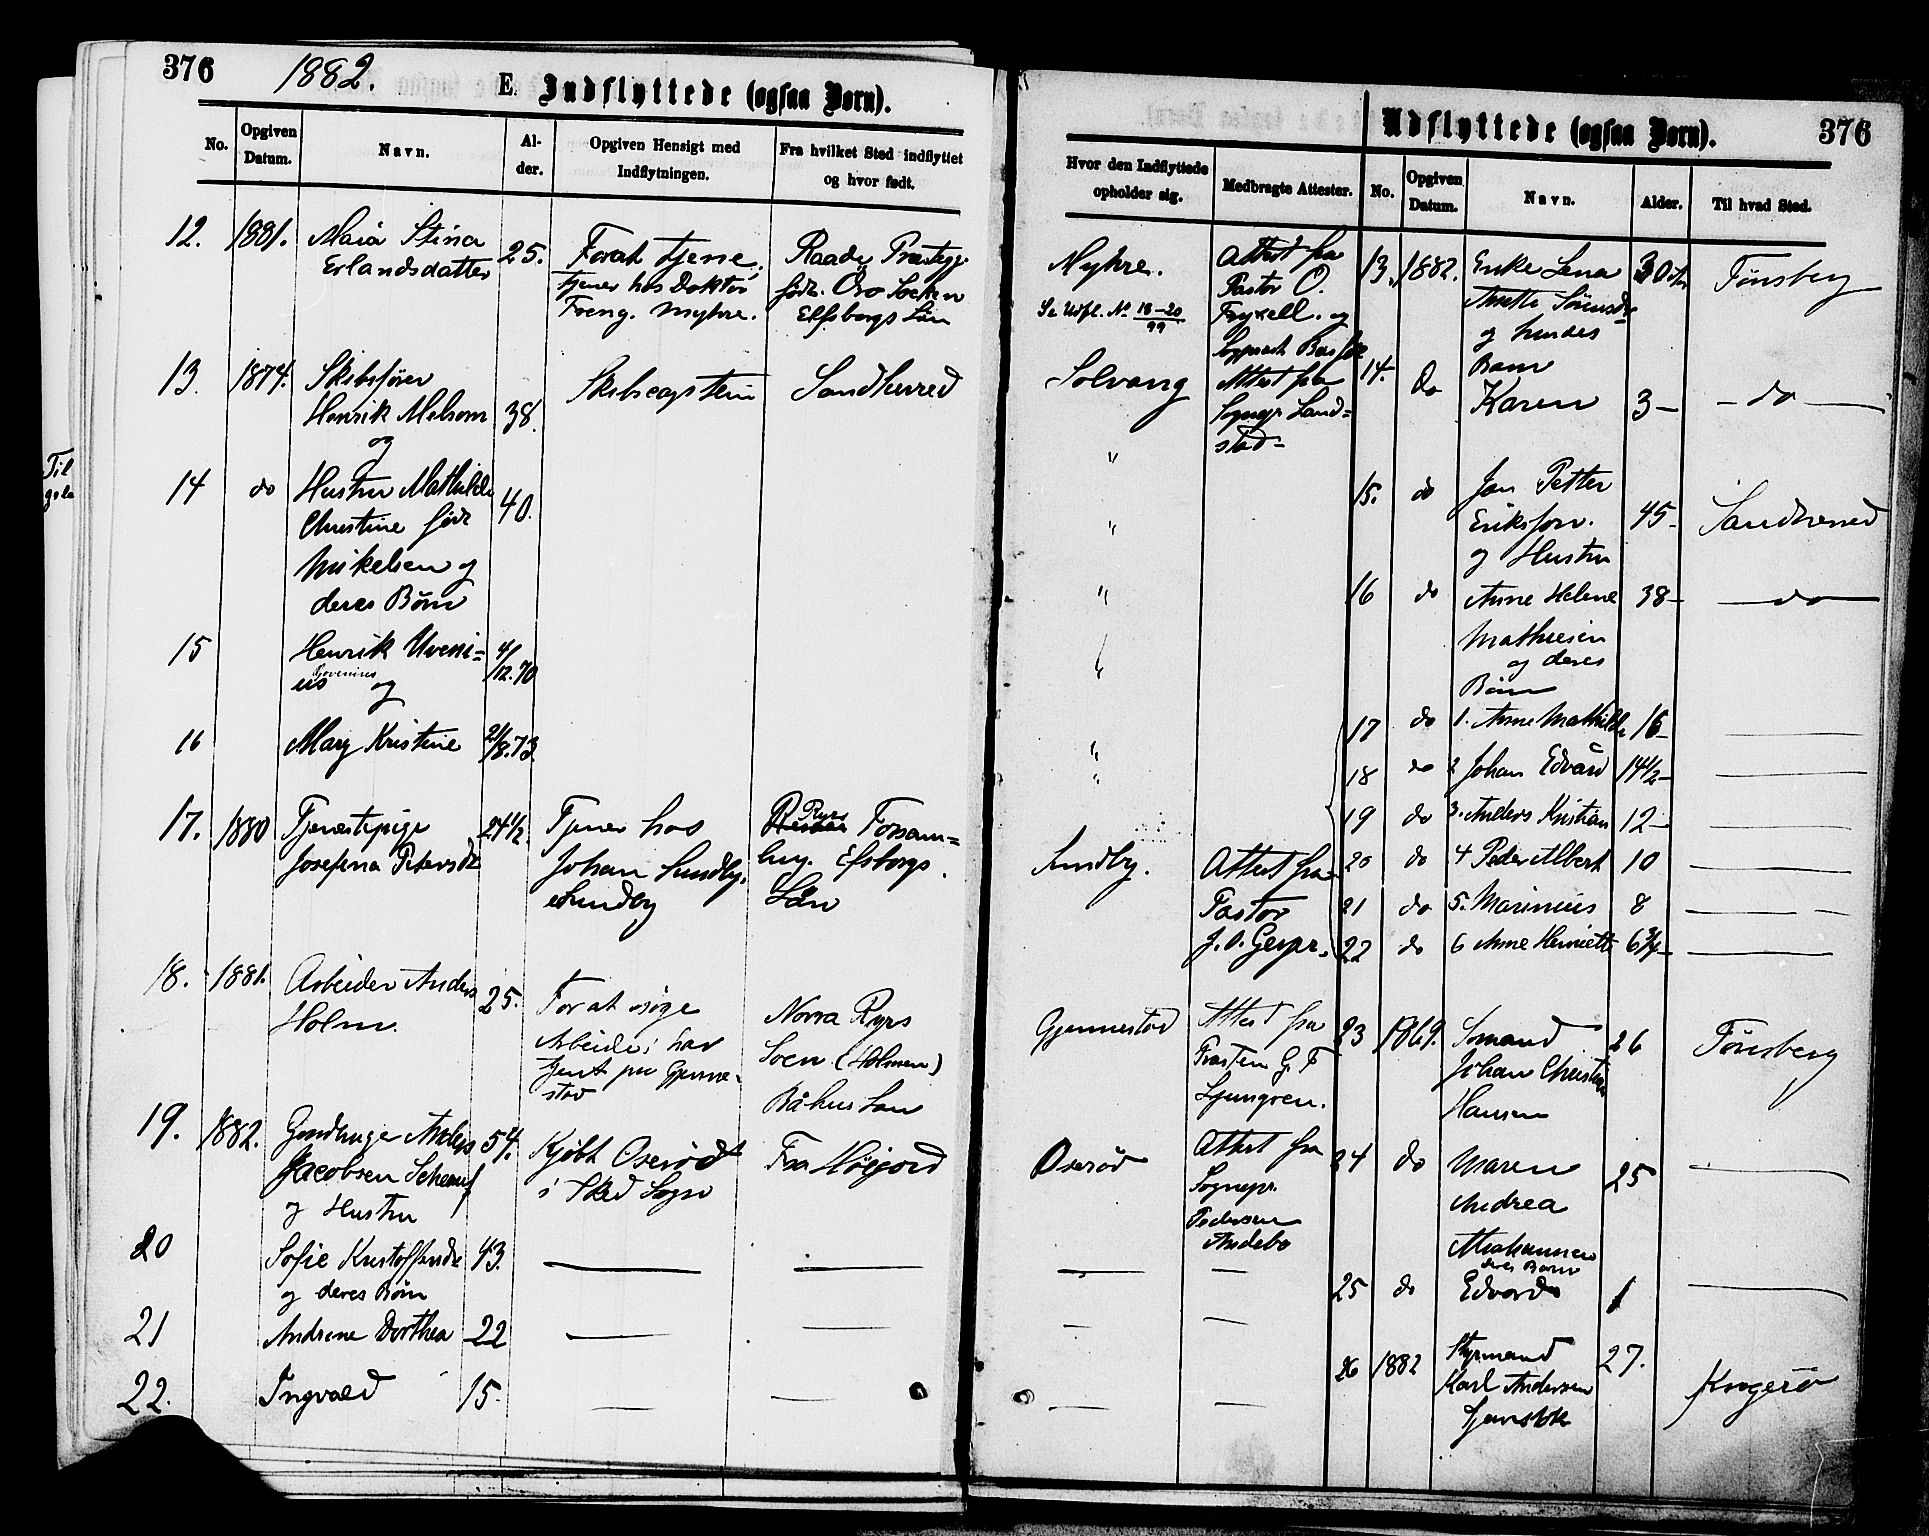 376 1882. E. Indflyttede (ogsaa Børn).
No. Opgiven Datum. Navn. Alder. Opgiven Hensigt med Indflytningen. Fra hvilket Sted indflyttet og hvor født.
12. 1881. Maria Stina 25. For at tjene,
Erlandsdatter tjener hos Doktor
Foeng. Myhre.
Elfsborgs Län
13. 1874. Skibsfører Sandherred
Henrik Melsom 38.
og
14 do Hustru Mathilde 40.
Christine født
Mikelsen og
deres Børn
15 Henrik Uveni= 4/12.70
us og
16 Mary Kristine 21/8.73.
17. 1880 Tjenestepige 24½. Tjener hos Ryrs Forsam=
Josefina Petersdt Johan Sundby, ling. Elfsborgs
Sundby Län
18. 1881. Arbeider Anders 25. For at søge Norra Ryrs
Holm. Arbeide; har Socn (Holmen)
tjent paa Gjenne=
stad Båhus Län
19. 1882. Gaardbruger Anders 54. Kjøbt Oserød Fra Høijord
Jacobsen i Sked Sogn
og Hustru
20 Sofie Kristoffersdt 43.
og deres Børn
21 Andrine Dorthea 22
22. Ingvald 15.
Til
Udflyttede (ogsaa Børn). 376
Hvor den Indflyttede opholder sig. Medbragte Attester. No. Opgiven Datum. Navn. Alder. Til hvad Sted.
Myhre. Attest fra 13. 1882. Enke Lena 30 Tønsberg
Se Udfl. No 18-20/99 Pastor O. Anette Sørensdt
Fryxell. og og hendes
Barn
Solvang Attest fra 14. do Karen 3 – do –
Sognepr. Land=
" stad=
15. do Jan Petter
" Eriksson. 45 – Sandherred
og Hustru
" 16 do Anne Helene 38 – do
Mathiesen
og deres
Børn
17 do 1. Anne Mathilde 16
" 18 do 2 Johan Edvard 14½
19 do 3. Anders Kristian 12
Sundby. Attest fra 20 do 4 Peder Albert 10
Pastor 21 do 5. Marinius 8
22 do 6 Anne Henriette 6¾
Gjennestad Attest fra 23 1869. Sømand 26 Tønsberg
Prosten G. F. Johan Christian
Ljungren. Hansen
Oserød Attest fra 24 do Maren 25
Sognepr. Andrea
Pedersen
Andebo
25 do Edvard 1
26 1882 Styrmand 27. Kragerø
Karl Andersen